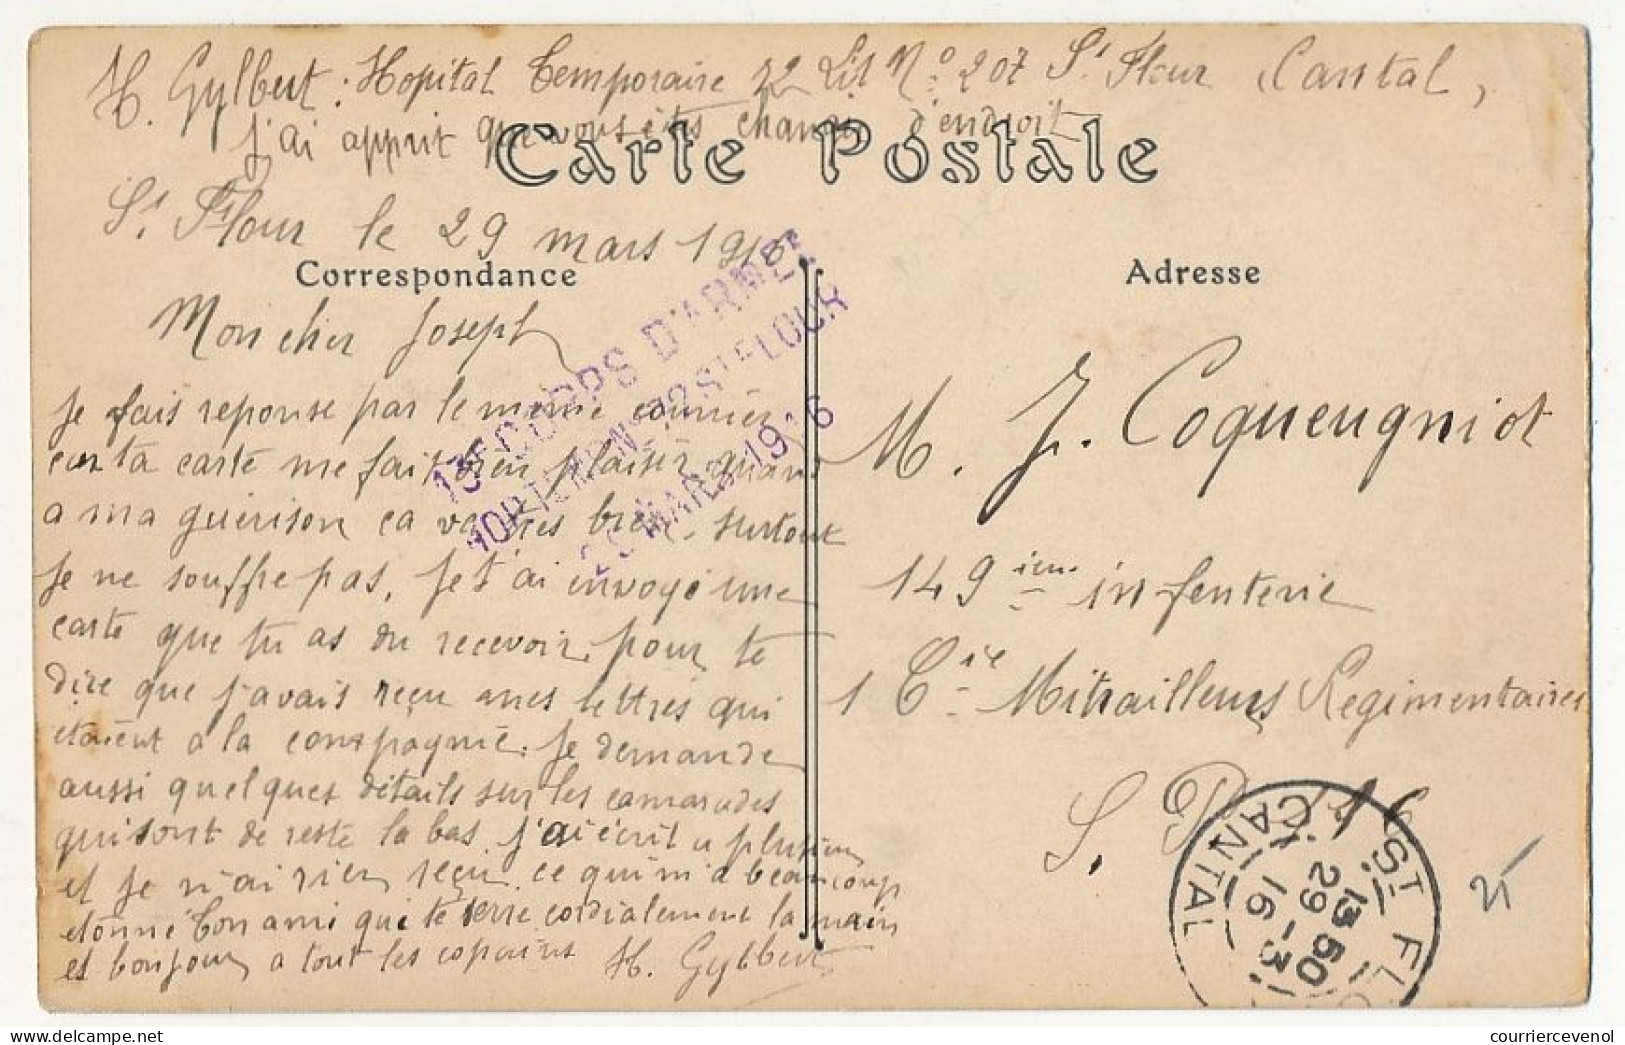 H. Gylbert : Hopital Temporaire 72 Lit No 207 St Flour (Cantal,
j'ai apprit que vous êtes changé d'endroit
Carte Postale
St Flour le 29 mars 1916
Correspondance
Mon cher Joseph
Je fais reponse par le meme courrier
car ta carte me fait bien plaisir quand
a ma guerison ca va tres bien surtout
Je ne souffre pas, Je t'ai envoyé une
carte que tu as du recevoir pour te
dire que j'avais reçu mes lettres qui
étaient a la compagnie. Je demande
aussi quelques détails sur les camarades
qui sont de reste la bas. J'ai écrit a plusieurs
et Je n'ai rien reçu ce qui m'a beaucoup
étonné ton ami qui te serre cordialement la main
et bonjour a tout les copains H. Gylbert
13E CORPS D'ARMEE
HOP. TEMP. No 72 ST FLOUR
29 MARS 1916
Adresse
M. J. Coqueugniot
149 ième infenterie
1 Cie Mitrailleurs Regimentaires
S. P.
ST FL
CANTAL
13 50
29 - 3
16
CANTAL
25
courriercevenol
www.courriercevenol.com